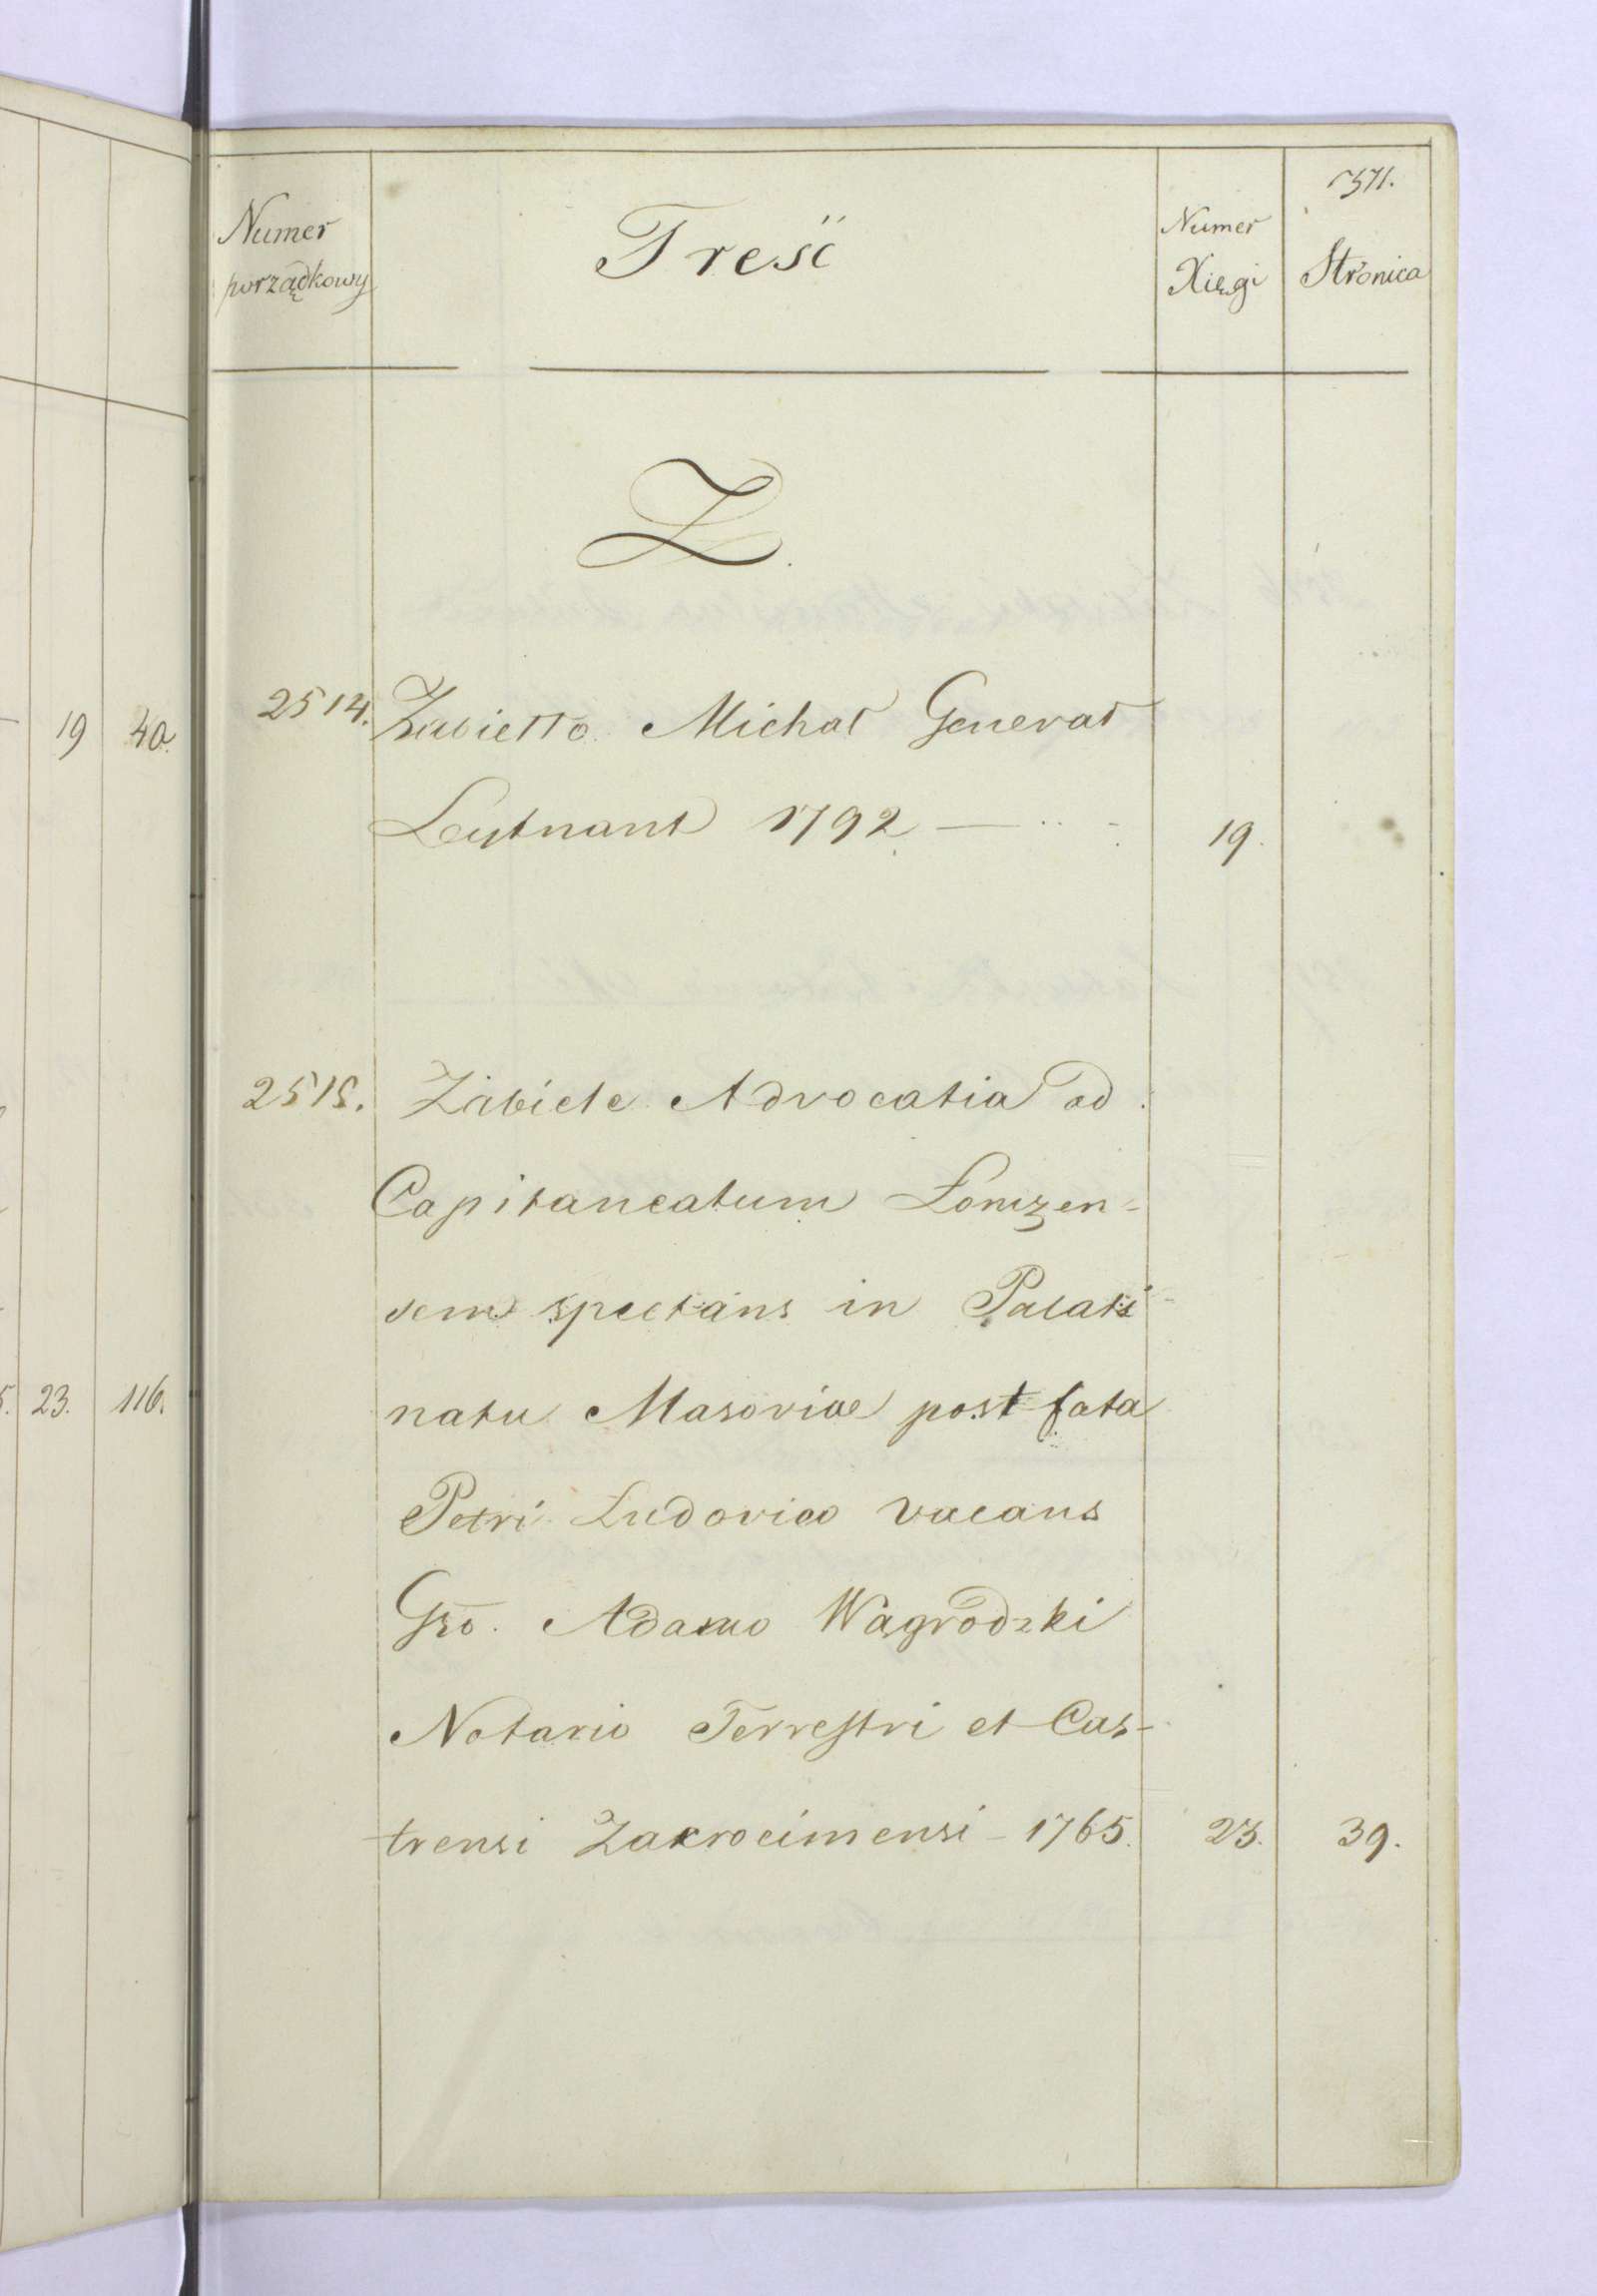 1571.
Numer porządkowy
Treść
Numer Xięgi
Stronica
Z.
2514. Zabiełło Michał Generał
Leytnant 1792 — 19.
2515. Zabiele Advocatia ad
Capitaneatum Łomzen-
sem spectans in Palati-
natu Masoviae post fata
Petri Ludovico vacans
Gso. Adamo Wagrodzki
Notario Terrestri et Cas-
trensi Zakrocimensi - 1765. 23. 39.
19 40.
23. 116.